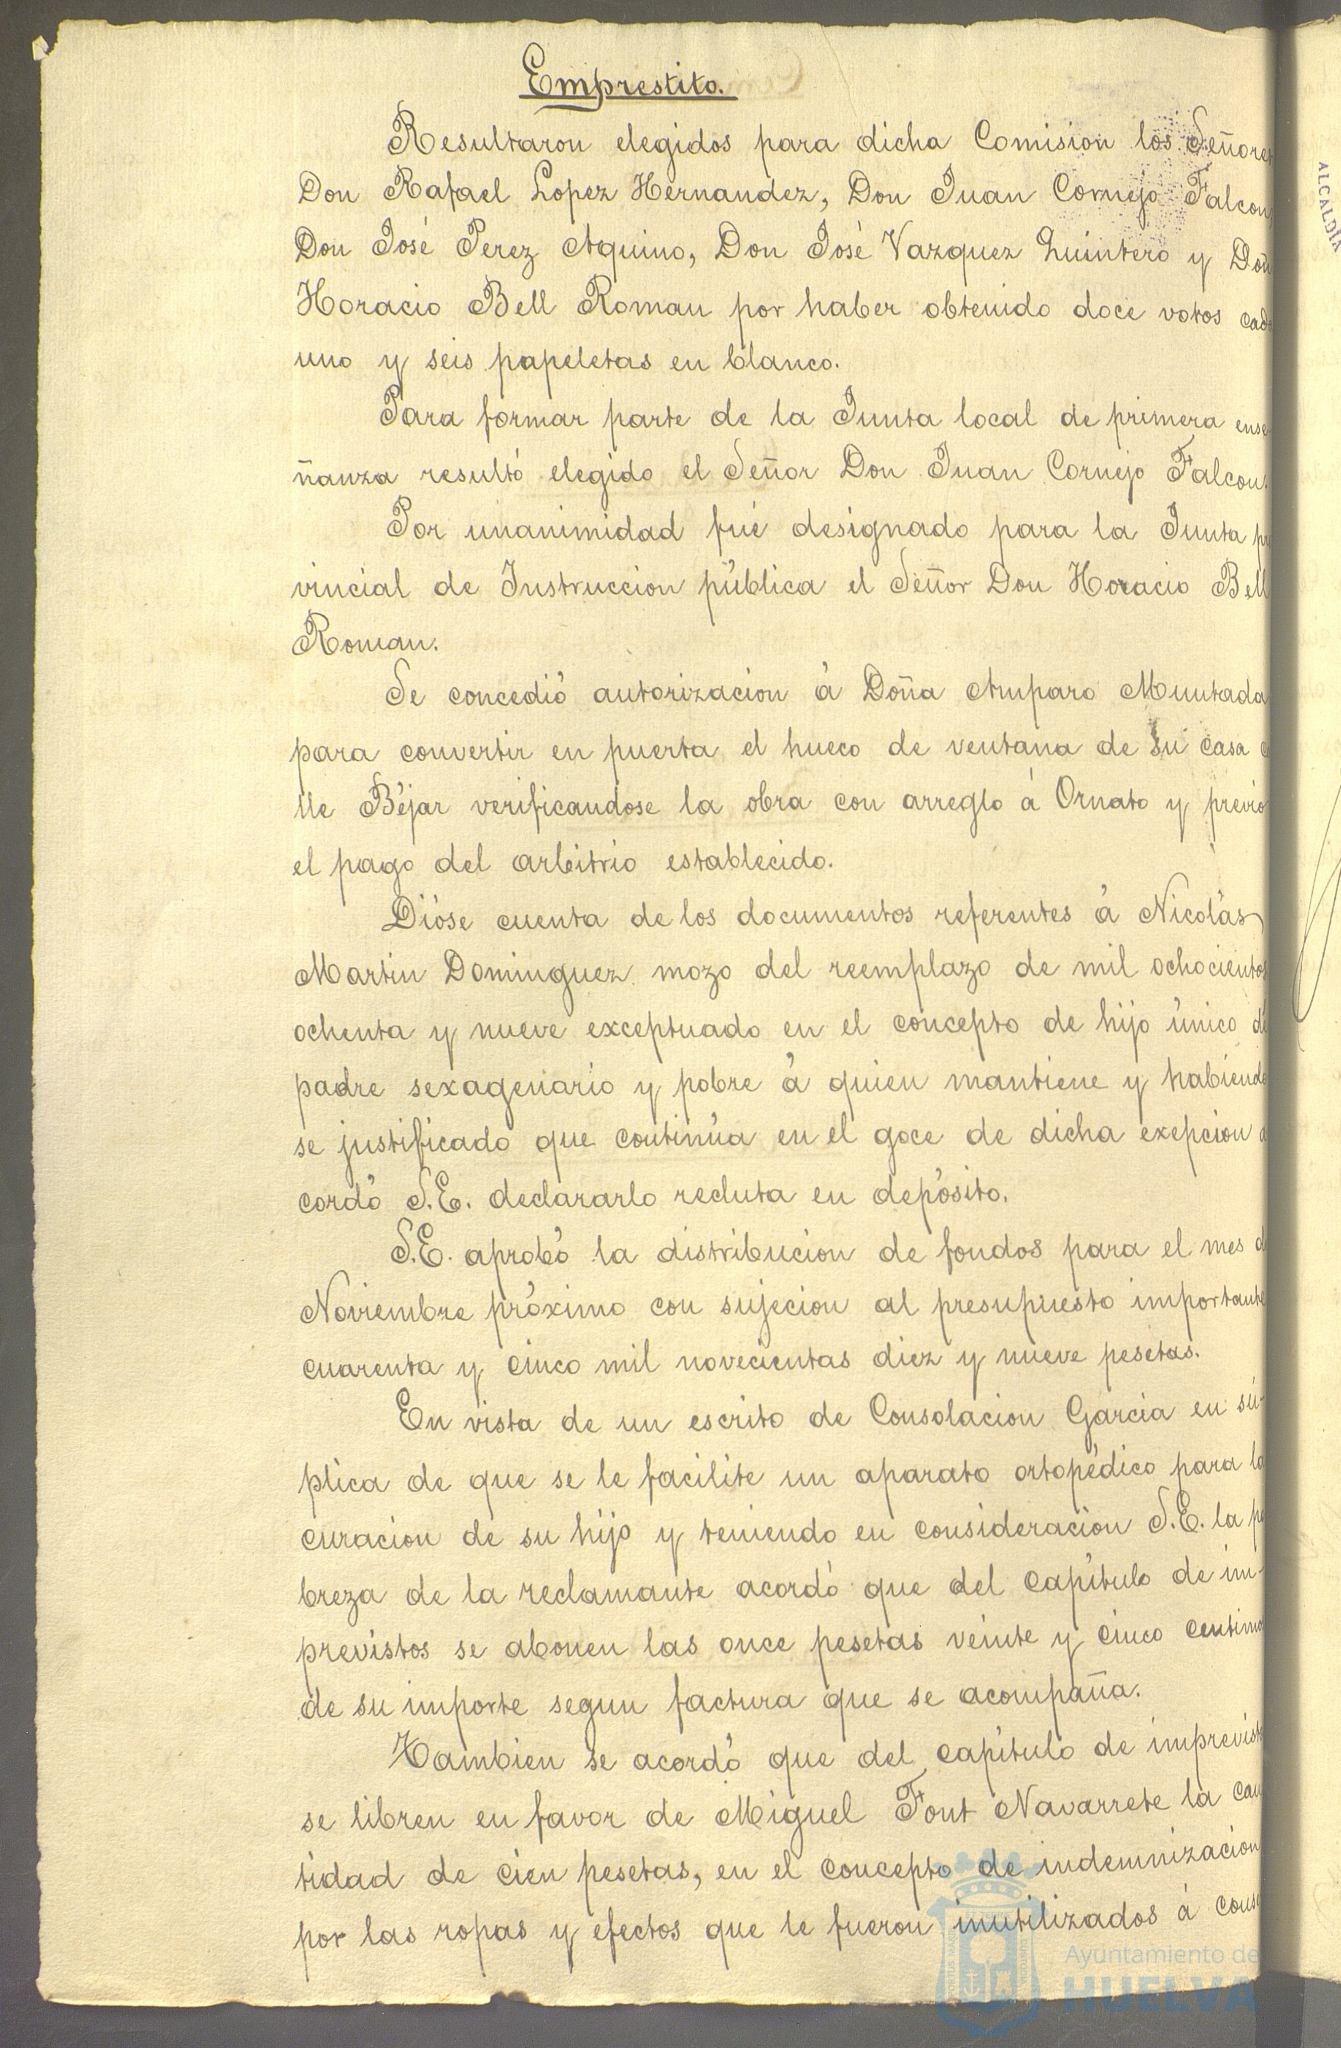 Emprestito.
Resultaron elegidos para dicha Comision los Señores
Don Rafael Lopez Hernandez, Don Juan Cornejo Falcon,
Don José Perez Aquino, Don José Vazquez Quintero y Don
Horacio Bell Roman por haber obtenido doce votos cada
uno y seis papeletas en blanco.
Para formar parte de la Junta local de primera ense
ñanza resultó elegido el Señor Don Juan Cornejo Falcon.
Por unanimidad fué designado para la Junta pro
vincial de Instruccion pública el Señor Don Horacio Bell
Roman.
Se concedió autorizacion á Doña Amparo Muntada
para convertir en puerta el hueco de ventana de su casa ca
lle Béjar verificandose la obra con arreglo á Ornato y previo
el pago del arbitrio establecido.
Dióse cuenta de los documentos referentes á Nicolás
Martin Dominguez mozo del reemplazo de mil ochocientos
ochenta y nueve exceptuado en el concepto de hijo único de
padre sexagenario y pobre á quien mantiene y habiendo
se justificado que continúa en el goce de dicha exepcion a
cordó S.E. declararlo recluta en depósito.
S.E. aprobó la distribucion de fondos para el mes de
Noviembre próximo con sujecion al presupuesto importante
cuarenta y cinco mil novecientas diez y nueve pesetas.
En vista de un escrito de Consolacion Garcia en sú-
plica de que se le facilite un aparato ortopédico para la
curacion de su hijo y teniendo en consideracion S.E. la po
breza de la reclamante acordó que del capítulo de im-
previstos se abonen las once pesetas veinte y cinco centimos
de su importe segun factura que se acompaña.
Tambien se acordó que del capítulo de imprevistos
se libren en favor de Miguel Font Navarrete la can
tidad de cien pesetas, en el concepto de indemnizacion
por las ropas y efectos que le fueron inutilizados á conse
ALCALDÍA
Ayuntamiento de
HUELVA